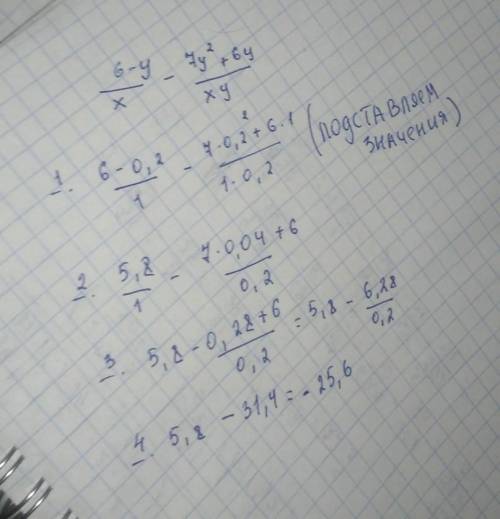 6-y/x - 7y²+6y/xy
1. 6-0,2/1 - 7·0,2²+6·1/1·0,2 (ПОДСТАВЛЯЕМ
ЗНАЧЕНИЯ)
2. 5,8/1 - 7·0,04+6/0,2
3. 5,8 - 0,28+6/0,2 = 5,8 - 6,28/0,2
4. 5,8 - 31,4 = -25,6